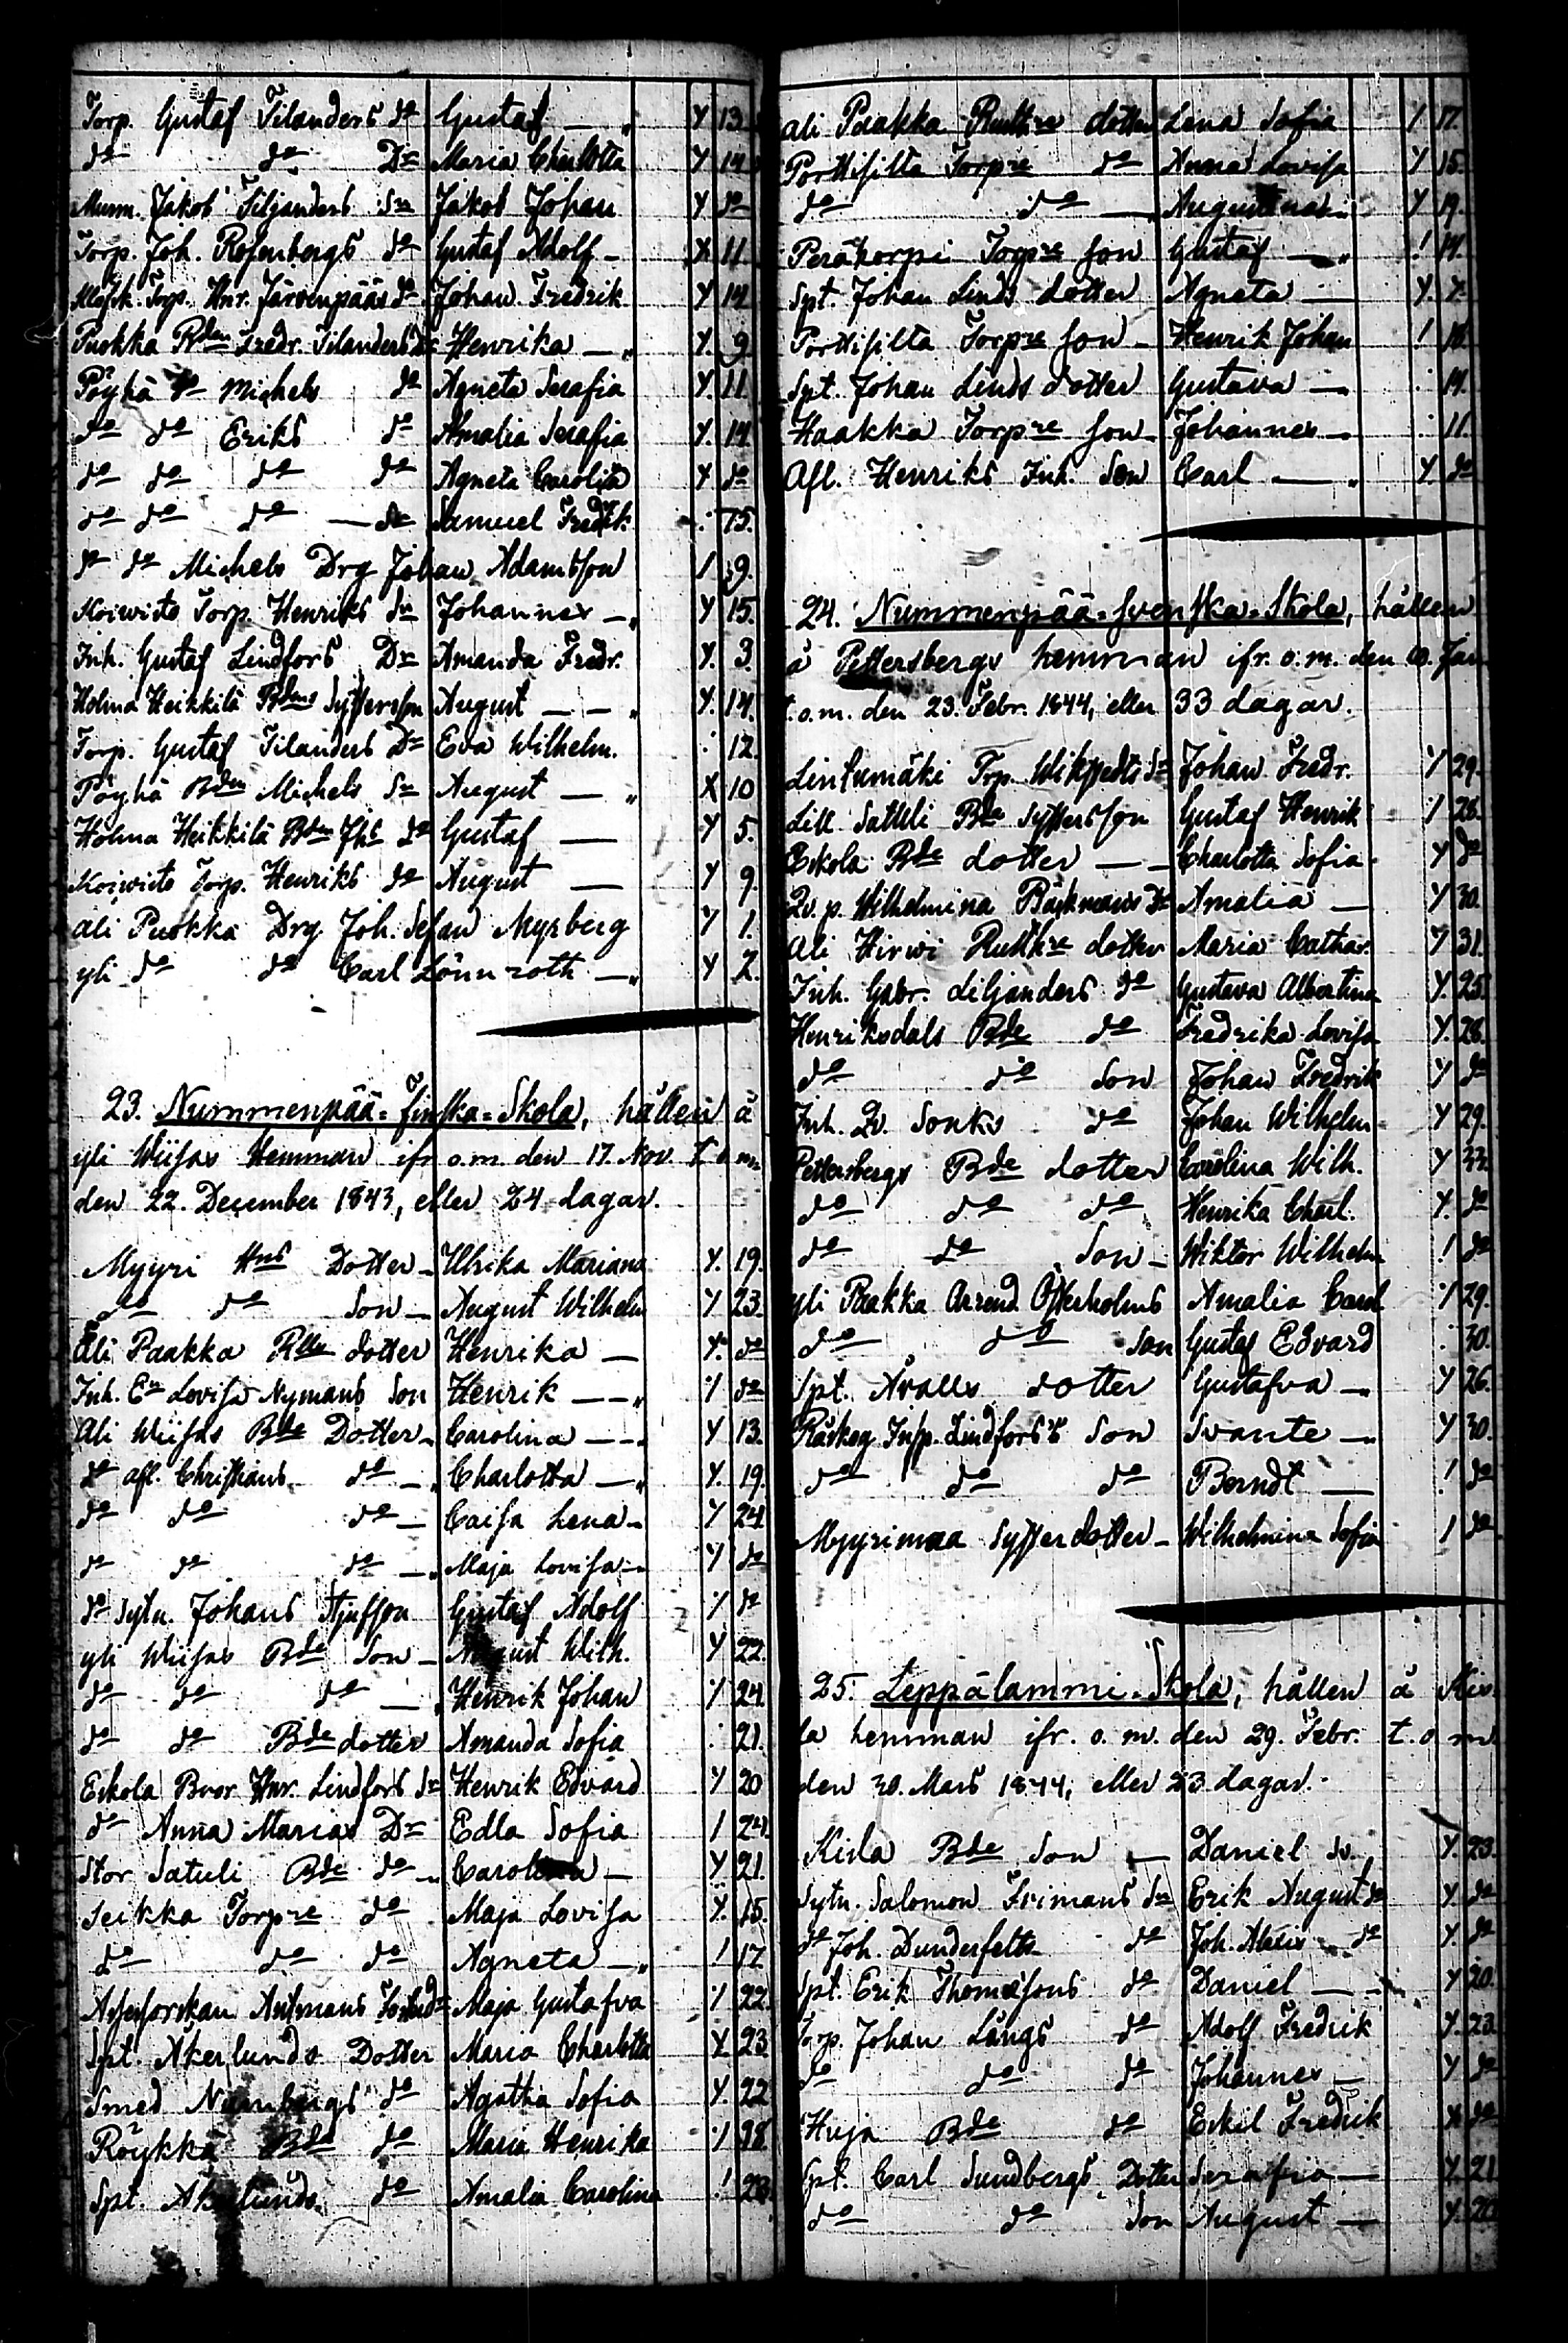 Torp. Gustaf Tilanders dº Gustaf — „ Y 13.
dº dº Dr Maria Charlotta Y 14
Murm. Jakob Tiljanders Sn Jakob Johan Y dº
Torp. Joh. Rosenbergs dº Gustaf Adolf — X 11.
Torp. Hnr. Järvenpääs dº Johan Fredrik Y 14
Puokka Fredr. Tilanders Henrika — „ Y. 9
Pöyhä dº Michels dº Agneta Serafia Y. 11.
dº dº Eriks dº Amalia Serafia Y. 14.
dº dº dº dº Agneta Carolina Y dº
dº dº dº — Sn Samuel Fredrik : 15.
dº dº Michels Drg Johan Adamsson / 9.
Koiwisto Torp. Henriks Sn Johannes — „ Y 15.
Inh. Gustaf Lindfors Dr Amanda Fredr. Y. 3.
Holma Heikkilä Bdens Systerson August — — „ Y. 14.
Torp. Gustaf Tilanders Dr Eva Wilhelm. : 12.
Pöyhä Bden Michels Sn August — „ X 10
Holma Heikkilä Bden Jhs dº Gustaf — Y 5.
Koiwisto Torp. Henriks dº August — Y 9.
Ali Puokka Drg Joh. Stefan Myrberg Y 1.
yli dº dº Carl Lönnroth — „ Y 2.
23. Nummenpää-Finska-Skola, hållen å
yli Wiisas Hemman ifr o.m. den 17. Nov. t o m
den 22. December 1843, eller 24 dagar.
Myyri Hus Dotter — Ulrika Mariana Y. 19.
dº dº Son — August Wilhelm Y 23.
Ali Paakka Dotter Henrika — Y. dº
Inh. En Lovisa Nymans Son Henrik — „ / dº
Ali Wiisas Bde Dotter — Carolina — Y 13.
dº afl. Christians dº — Charlotta — „ Y. 19.
dº dº dº — Caisa Lena — Y 24
dº dº dº — Maja Lovisa — Y dº
dº Sytn. Johans Stjufson Gustaf Adolf / dº
yli Wiisas Bde Son — August Wilh. Y 22.
dº dº dº — Henrik Johan / 24.
dº dº Bde dotter Amanda Sofia : 21.
Eskola Hnr. Lindfors Sn Henrik Edvard Y 20
dº Anna Marias Dr Edla Sofia / 24.
Stor Satuli Bde dº — Carolina — Y 21.
Seikka Torpre dº Maja Lovisa Y. 15.
dº dº dº Agneta — „ / 17
Maja Gustafva / 22.
Spt. Åkerlunds Dotter Maria Charlotta Y. 23.
Smed Nurmbergs dº Agatha Sofia Y. 22
Röykkä Bde dº Maria Henrika / 18
Spt. Åkerlunds dº Amalia Carolina / 23.
Ali Paakka Rusthre dotter Lena Sofia / 17.
Porttisilta Torpre dº Anna Lovisa Y 15.
dº dº — Augustina Y 19.
Peräkorpi Torpre Son Gustaf — „ / 14.
Spt. Johan Linds dotter Agneta — Y. 7.
Porttisilta Torpre Son — Henrik Johan / 18
Spt. Johan Linds dotter Gustava — : 14.
Haakka Torpre Son — Johannes — : 11.
Afl. Henriks Inh. Son Carl — „ Y. dº
24. Nummenpää-Svenska-Skola, hållen
å Pettersbergs hemman ifr. o.m. den 10. Jan
t.o.m. den 23. Febr. 1844, eller 33 dagar.
Lintumäki Torp. Wikstedts Sn Johan Fredr. Y 29.
Lill Satuli Bde Systerson Gustaf Henrik / 28.
Eskola Bde dotter — Charlotta Sofia Y dº
Qv. p. Wilhelmina Bäckmans Dr Amalia — Y 30.
Ali Hirwi Rusthre dotter Maria Cathar. Y 31.
Inh. Gabr. Liljanders dº Gustava Albertina Y. 25.
Henriksdals Bde dº Fredrika Lovisa Y. 28.
dº dº Son Johan Fredrik Y dº
Inh. Qv. Sonks dº Johan Wilhelm Y 29.
Pettersbergs Bde dotter Carolina Wilh. Y 33.
dº dº dº Henrika Charl. Y. dº
dº dº Son — Wiktor Wilhelm / dº
yli Paakka Arrend. Österholms Amalia Carol. / 29.
dº dº Son Gustaf Edvard : 30.
Spt. Avalls dotter Gustafva — Y 26.
Råskog Insp. Lindfors's Son Svante — Y 30.
dº dº dº Berndt — / dº
Myyrimaa Systerdotter — Wilhelmina Sofia / dº
25. Leppälammi-Skola, hållen å Kis-
la hemman ifr. o. m. den 29. Febr. t. o m
den 30. Mars 1844, eller 23 dagar.
Kisla Bde Son — Daniel Sv. Y. 23.
Sytn. Salomon Frimans Sn Erik August dº Y. dº
dº Joh. Dunderfelts dº Joh. Alexis — dº Y. dº
Spt. Erik Thomassons dº Daniel — Y 20.
Torp. Johan Långs dº Adolf Fredrik Y. 23.
dº dº dº Johannes — Y dº
Huja Bde dº Eskil Fredrik X dº
Spt. Carl Sundbergs Dotter Serafia — Y. 21
dº dº Son August — Y. 20